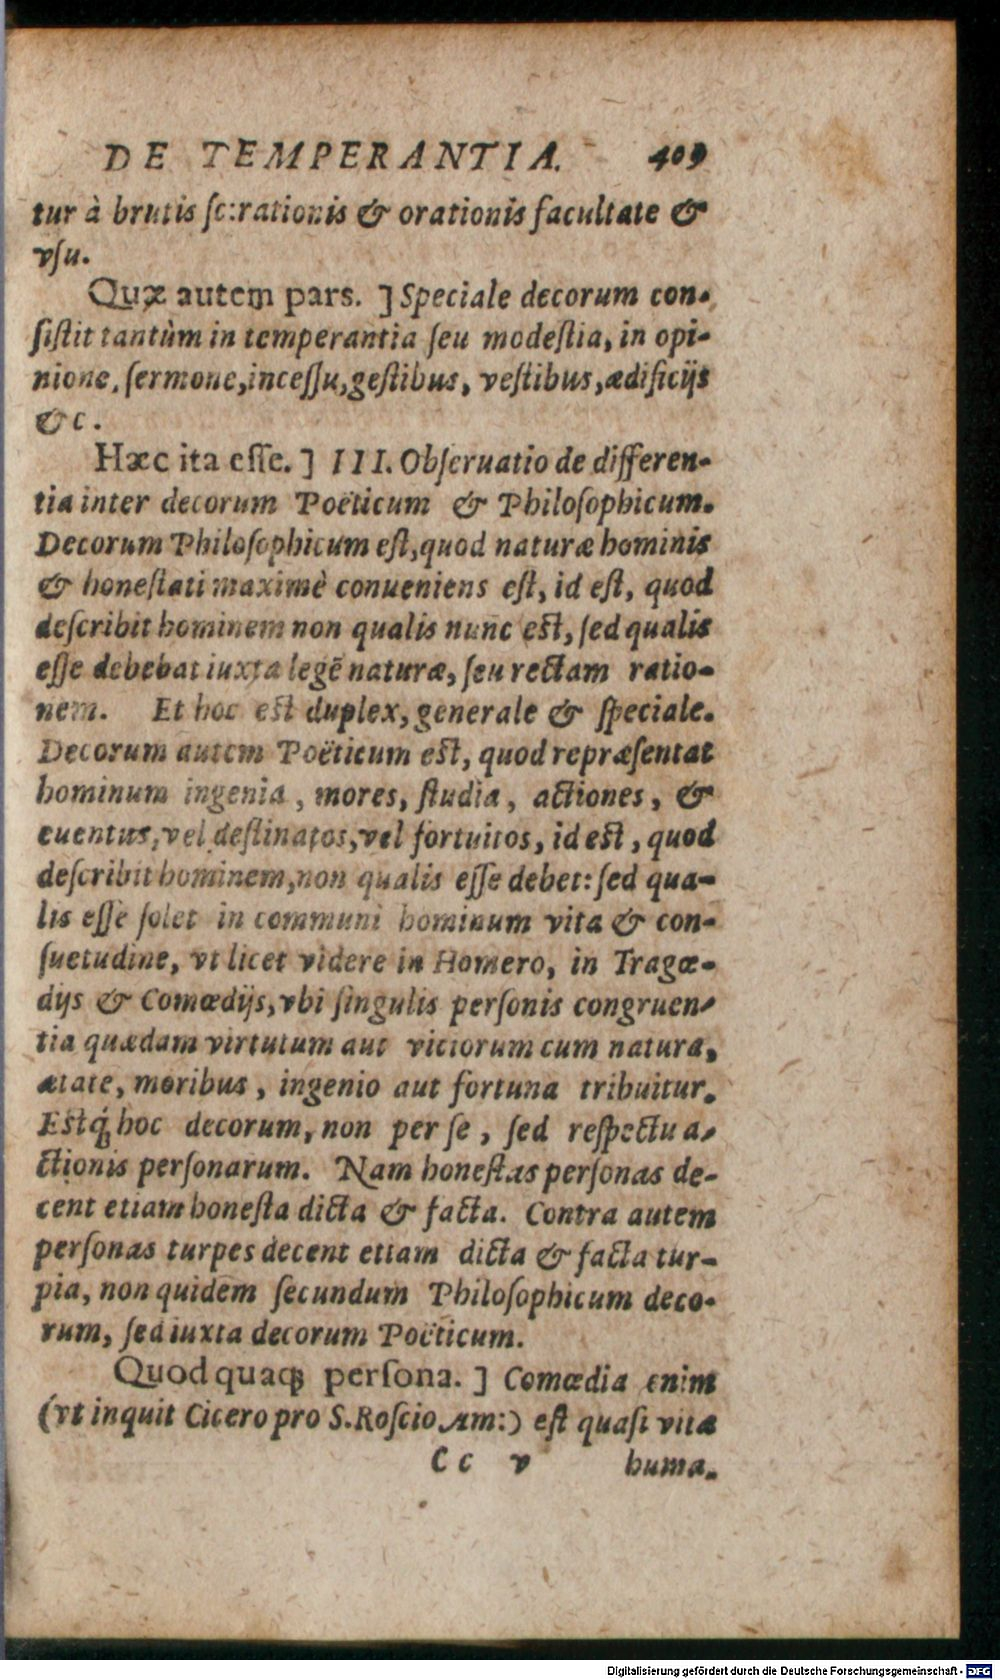 DE TEMPERANTIA. 409
tur à brutis ſc:rationis & orationis facultate &
vſu.
Quæ autem pars. ] Speciale decorum con-
ſiſtit tantùm in temperantia ſeu modeſtia, in opi-
nione, ſermone, inceſſu, geſtibus, veſtibus, ædificijs
&c.
Hæc ita eſſe. ] III. Obſeruatio de differen-
tia inter decorum Poëticum & Philoſophicum.
Decorum Philoſophicum eſt, quod naturæ hominis
& honeſtati maximè conueniens eſt, id eſt, quod
deſcribit hominem non qualis nunc eſt, ſed qualis
eſſe debebat iuxta legẽ naturæ, ſeu rectam ratio-
nem. Et hoc eſt duplex, generale & ſpeciale.
Decorum autem Poëticum eſt, quod repræſentat
hominum ingenia, mores, ſtudia, actiones, &
euentus, vel deſtinatos, vel fortuitos, id eſt, quod
deſcribit hominem, non qualis eſſe debet: ſed qua-
lis eſſe ſolet in communi hominum vita & con-
ſuetudine, vt licet videre in Homero, in Tragœ-
dijs & Comœdijs, vbi ſingulis perſonis congruen-
tia quædam virtutum aut vitiorum cum natura,
ætate, moribus, ingenio aut fortuna tribuitur.
Eſtq́; hoc decorum, non per ſe, ſed reſpectu a-
ctionis perſonarum. Nam honeſtas perſonas de-
cent etiam honeſta dicta & facta. Contra autem
perſonas turpes decent etiam dicta & facta tur-
pia, non quidem ſecundum Philoſophicum deco-
rum, ſed iuxta decorum Poëticum.
Quod quaq; perſona. ] Comœdia enim
(vt inquit Cicero pro S. Roſcio Am:) eſt quaſi vitæ
Cc v huma-
Digitalisierung gefördert durch die Deutsche Forschungsgemeinschaft - DFG